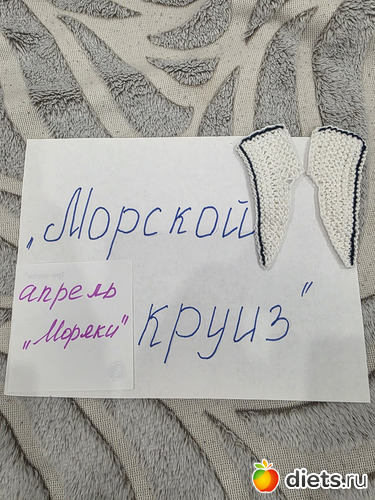 „Морской
апрель
„Моряки"
круиз"
diets.ru